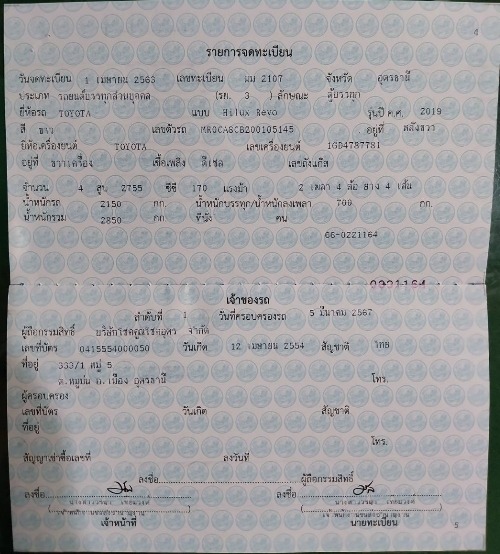 4
รายการจดทะเบียน
วันจดทะเบียน 1 เมษายน 2563 เลขทะเบียน ผม 2107 จังหวัด อุดรธานี
ประเภท รถยนต์บรรทุกส่วนบุคคล (รย. 3 ) ลักษณะ ตู้บรรทุก
ยี่ห้อรถ TOYOTA แบบ Hilux Revo รุ่นปี ค.ศ. 2019
สี ขาว เลขตัวรถ MR0CA8CB200105145 อยู่ที่ หลังขวา
ยี่ห้อเครื่องยนต์ TOYOTA เลขเครื่องยนต์ 1GD4787781
อยู่ที่ ขวาเครื่อง เชื้อเพลิง ดีเซล เลขถังแก๊ส
จำนวน 4 สูบ 2755 ซีซี 170 แรงม้า 2 เพลา 4 ล้อ ยาง 4 เส้น
น้ำหนักรถ 2150 กก. น้ำหนักบรรทุก/น้ำหนักลงเพลา 700 กก.
น้ำหนักรวม 2850 กก. ที่นั่ง คน
66-0221164
0221164
เจ้าของรถ
ลำดับที่ 1 วันที่ครอบครองรถ 5 มีนาคม 2567
ผู้ถือกรรมสิทธิ์ บริษัทโชคคูณโชคอุดร จำกัด
เลขที่บัตร 0415554000050 วันเกิด 12 เมษายน 2554 สัญชาติ ไทย
ที่อยู่ 333/1 หมู่ 5
ต.หมูม่น อ.เมือง อุดรธานี โทร.
ผู้ครอบครอง
เลขที่บัตร วันเกิด สัญชาติ
ที่อยู่
โทร.
สัญญาเช่าซื้อเลขที่ ลงวันที่
ลงชื่อ ผู้ถือกรรมสิทธิ์
ลงชื่อ ลงชื่อ
เจ้าหน้าที่ นายทะเบียน
5